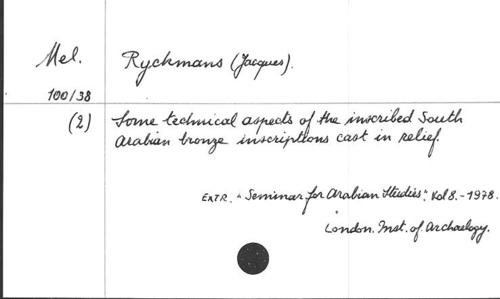 Mel. Ryckmans (Jacques).
100/38
(2) Some technical aspects of the inscribed South
Arabian bronze inscriptions cast in relief.
EXTR. "Seminar for Arabian Studies". Vol 8.-1978.
London. Inst. of Archaelogy.